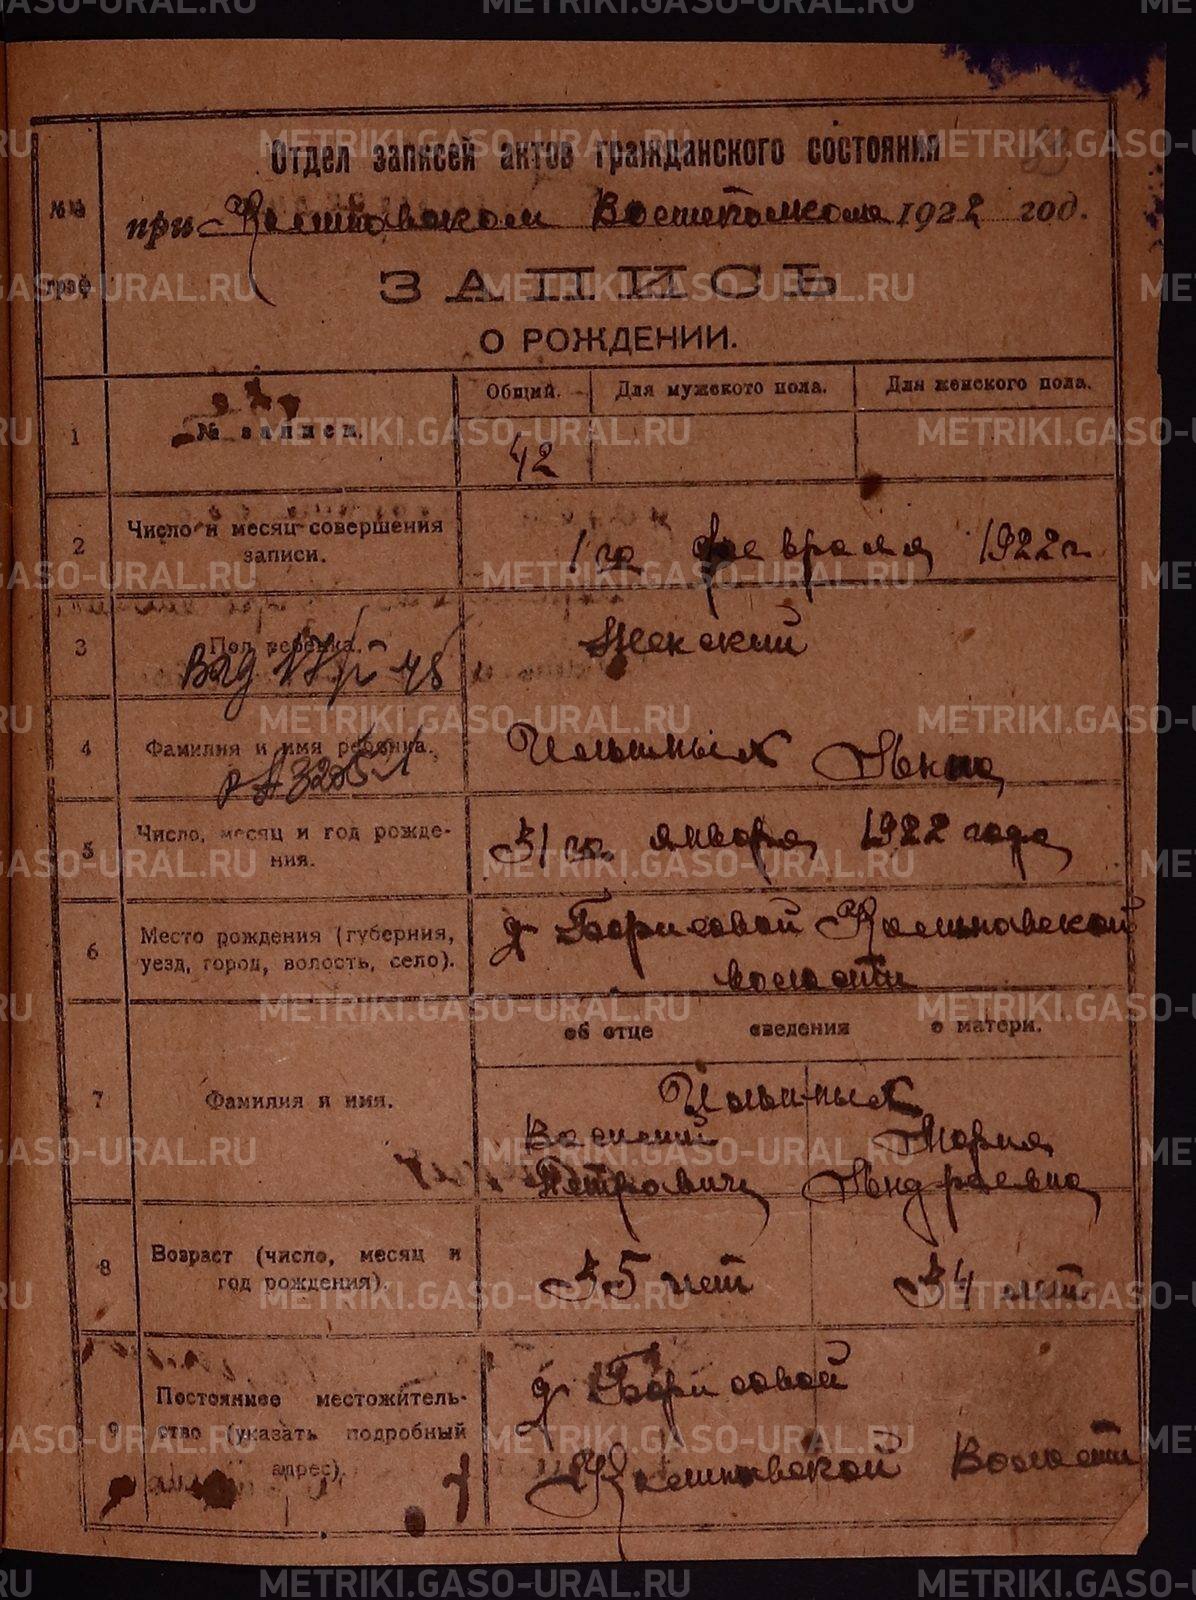 Отдел записей актов гражданского состояния
№№ граф
при Волисполкоме 1922 год.
ЗАПИСЬ
О РОЖДЕНИИ.
1
№ записи.
Общий.
Для мужского пола.
Для женского пола.
42
2
Число и месяц совершения
записи.
1 го февраля 1922 г.
3
Пол ребенка.
Женский
4
Фамилия и имя ребенка.
Ильиных Анна
5
Число, месяц и год рожде-
ния.
31 го января 1922 года
6
Место рождения (губерния,
уезд, город, волость, село).
д Борисовой
волости
об отце сведения о матери.
7
Фамилия и имя.
Ильиных
Василий Мария
Петрович Андреевна
8
Возраст (число, месяц и
год рождения).
35 лет 34 лет
9
Постоянное местожитель-
ство (указать подробный
адрес).
д Борисовой
Волости
METRIKI.GASO-URAL.RU